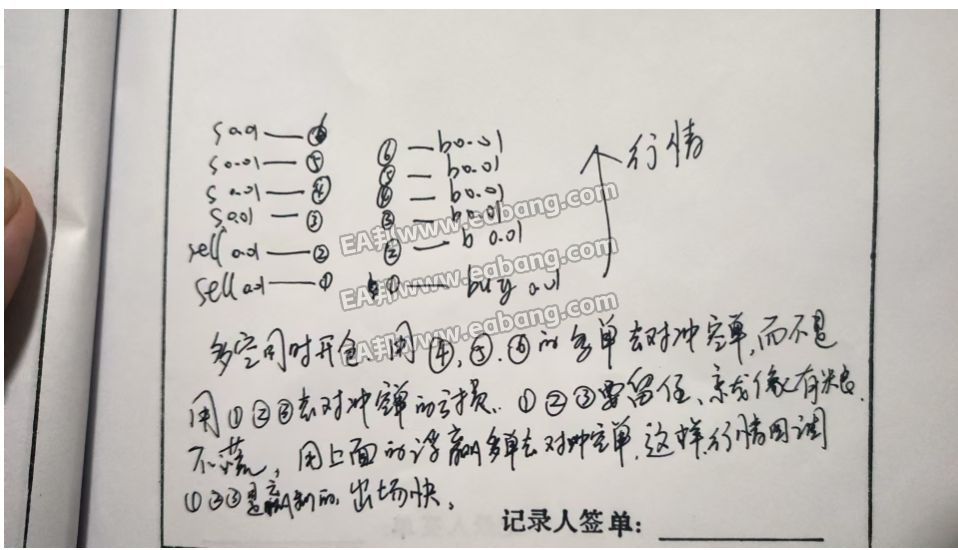 s 0.01 — ⑥ ⑥ — b0.01
s 0.01 — ⑤ ⑤ — b0.01
s 0.01 — ④ ④ — b0.01
s 0.01 — ③ ③ — b0.01
sell 0.01 — ② ② — b 0.01
sell 0.01 — ① ① — buy 0.01
行情
EA邦www.eabang.com
EA邦www.eabang.com
EA邦www.eabang.com
多空同时开仓.用④.⑤.⑥的多单去对冲空单,而不是
用①②③去对冲空单的亏损..①②③要留住、就像有粮
不慌,用上面的浮赢多单去对冲空单.这样行情回调
①②③是赢利的,出场快。
记录人签单: